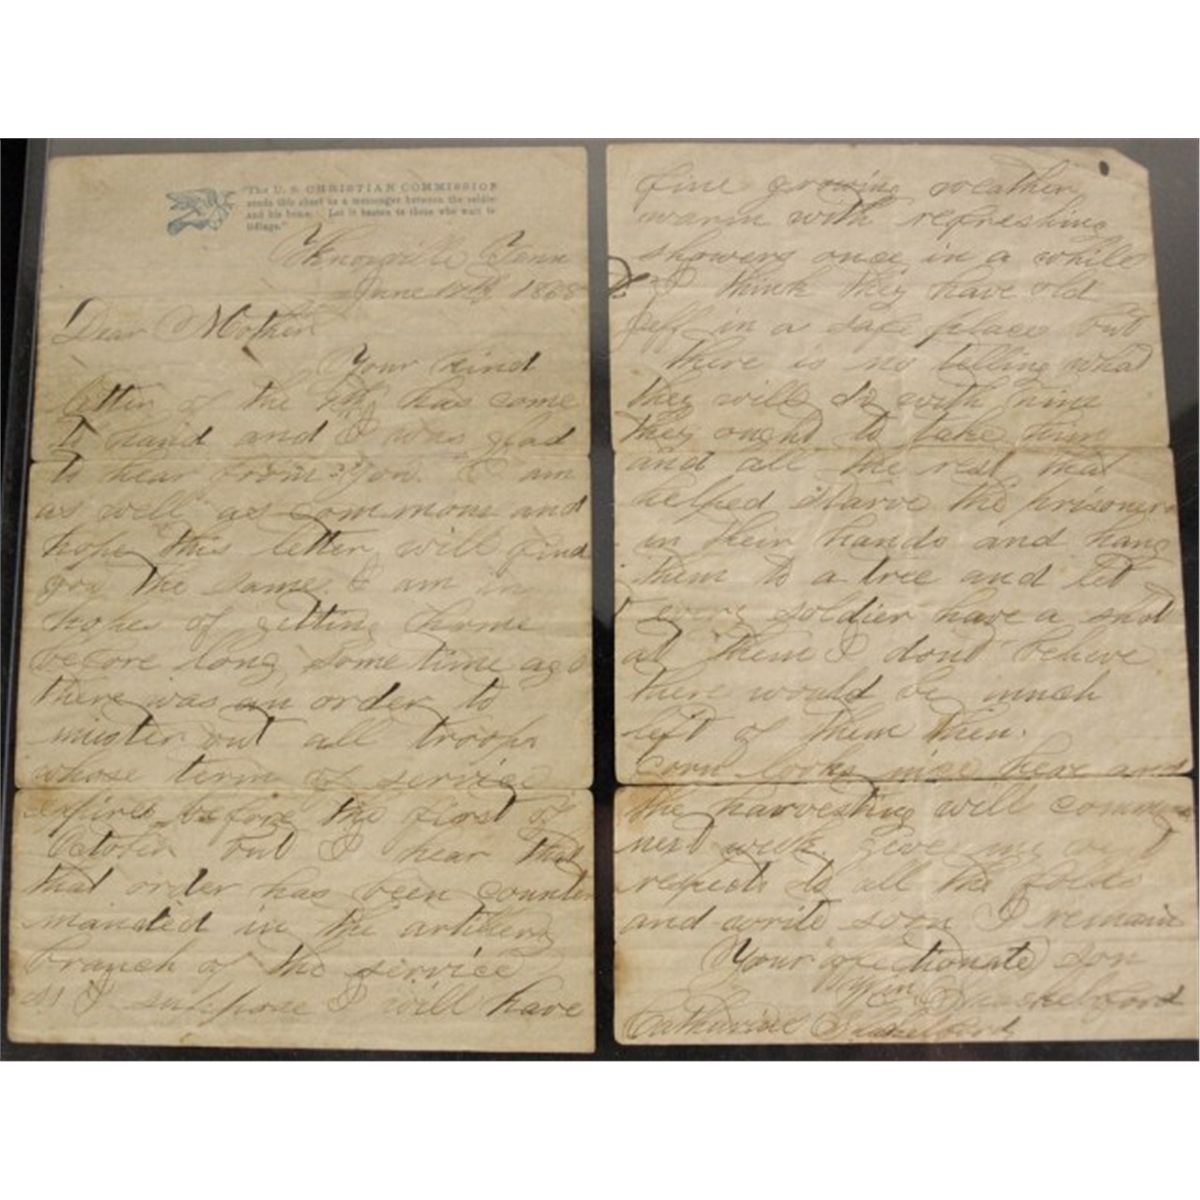 "The U. S. CHRISTIAN COMMISSION
sends this sheet as a messenger between the soldier
and his home. Let it hasten to those who wait for
tidings."
Knoxville Tenn
June 186
Dear Mother
Your kind
letter of the has come
to hand and I was glad
to hear from you. I am
as well as common and
hope this letter will find
you the same. I am in
hopes of getting home
before long some time ago
there was an order to
muster out all troops
whose term of service
expires before the first of
October but I hear that
that order has been counter
manded in the artillery
branch of the service
so I suppose I will have
fine growing weather
warm with refreshing
showers once in a while
I think they have old
Jeff in a safe place but
there is no telling what
they will do with him
they ought to take him
and all the rest that
helped starve the prisoners
in their hands and hang
them to a tree and let
every soldier have a shot
at them I dont believe
there would be much
left of them then.
Corn looks nice here and
the harvesting will commence
next week give my
respects to all the folks
and write soon I remain
Your affectionate son
Shackelford
Catharine Shackelford